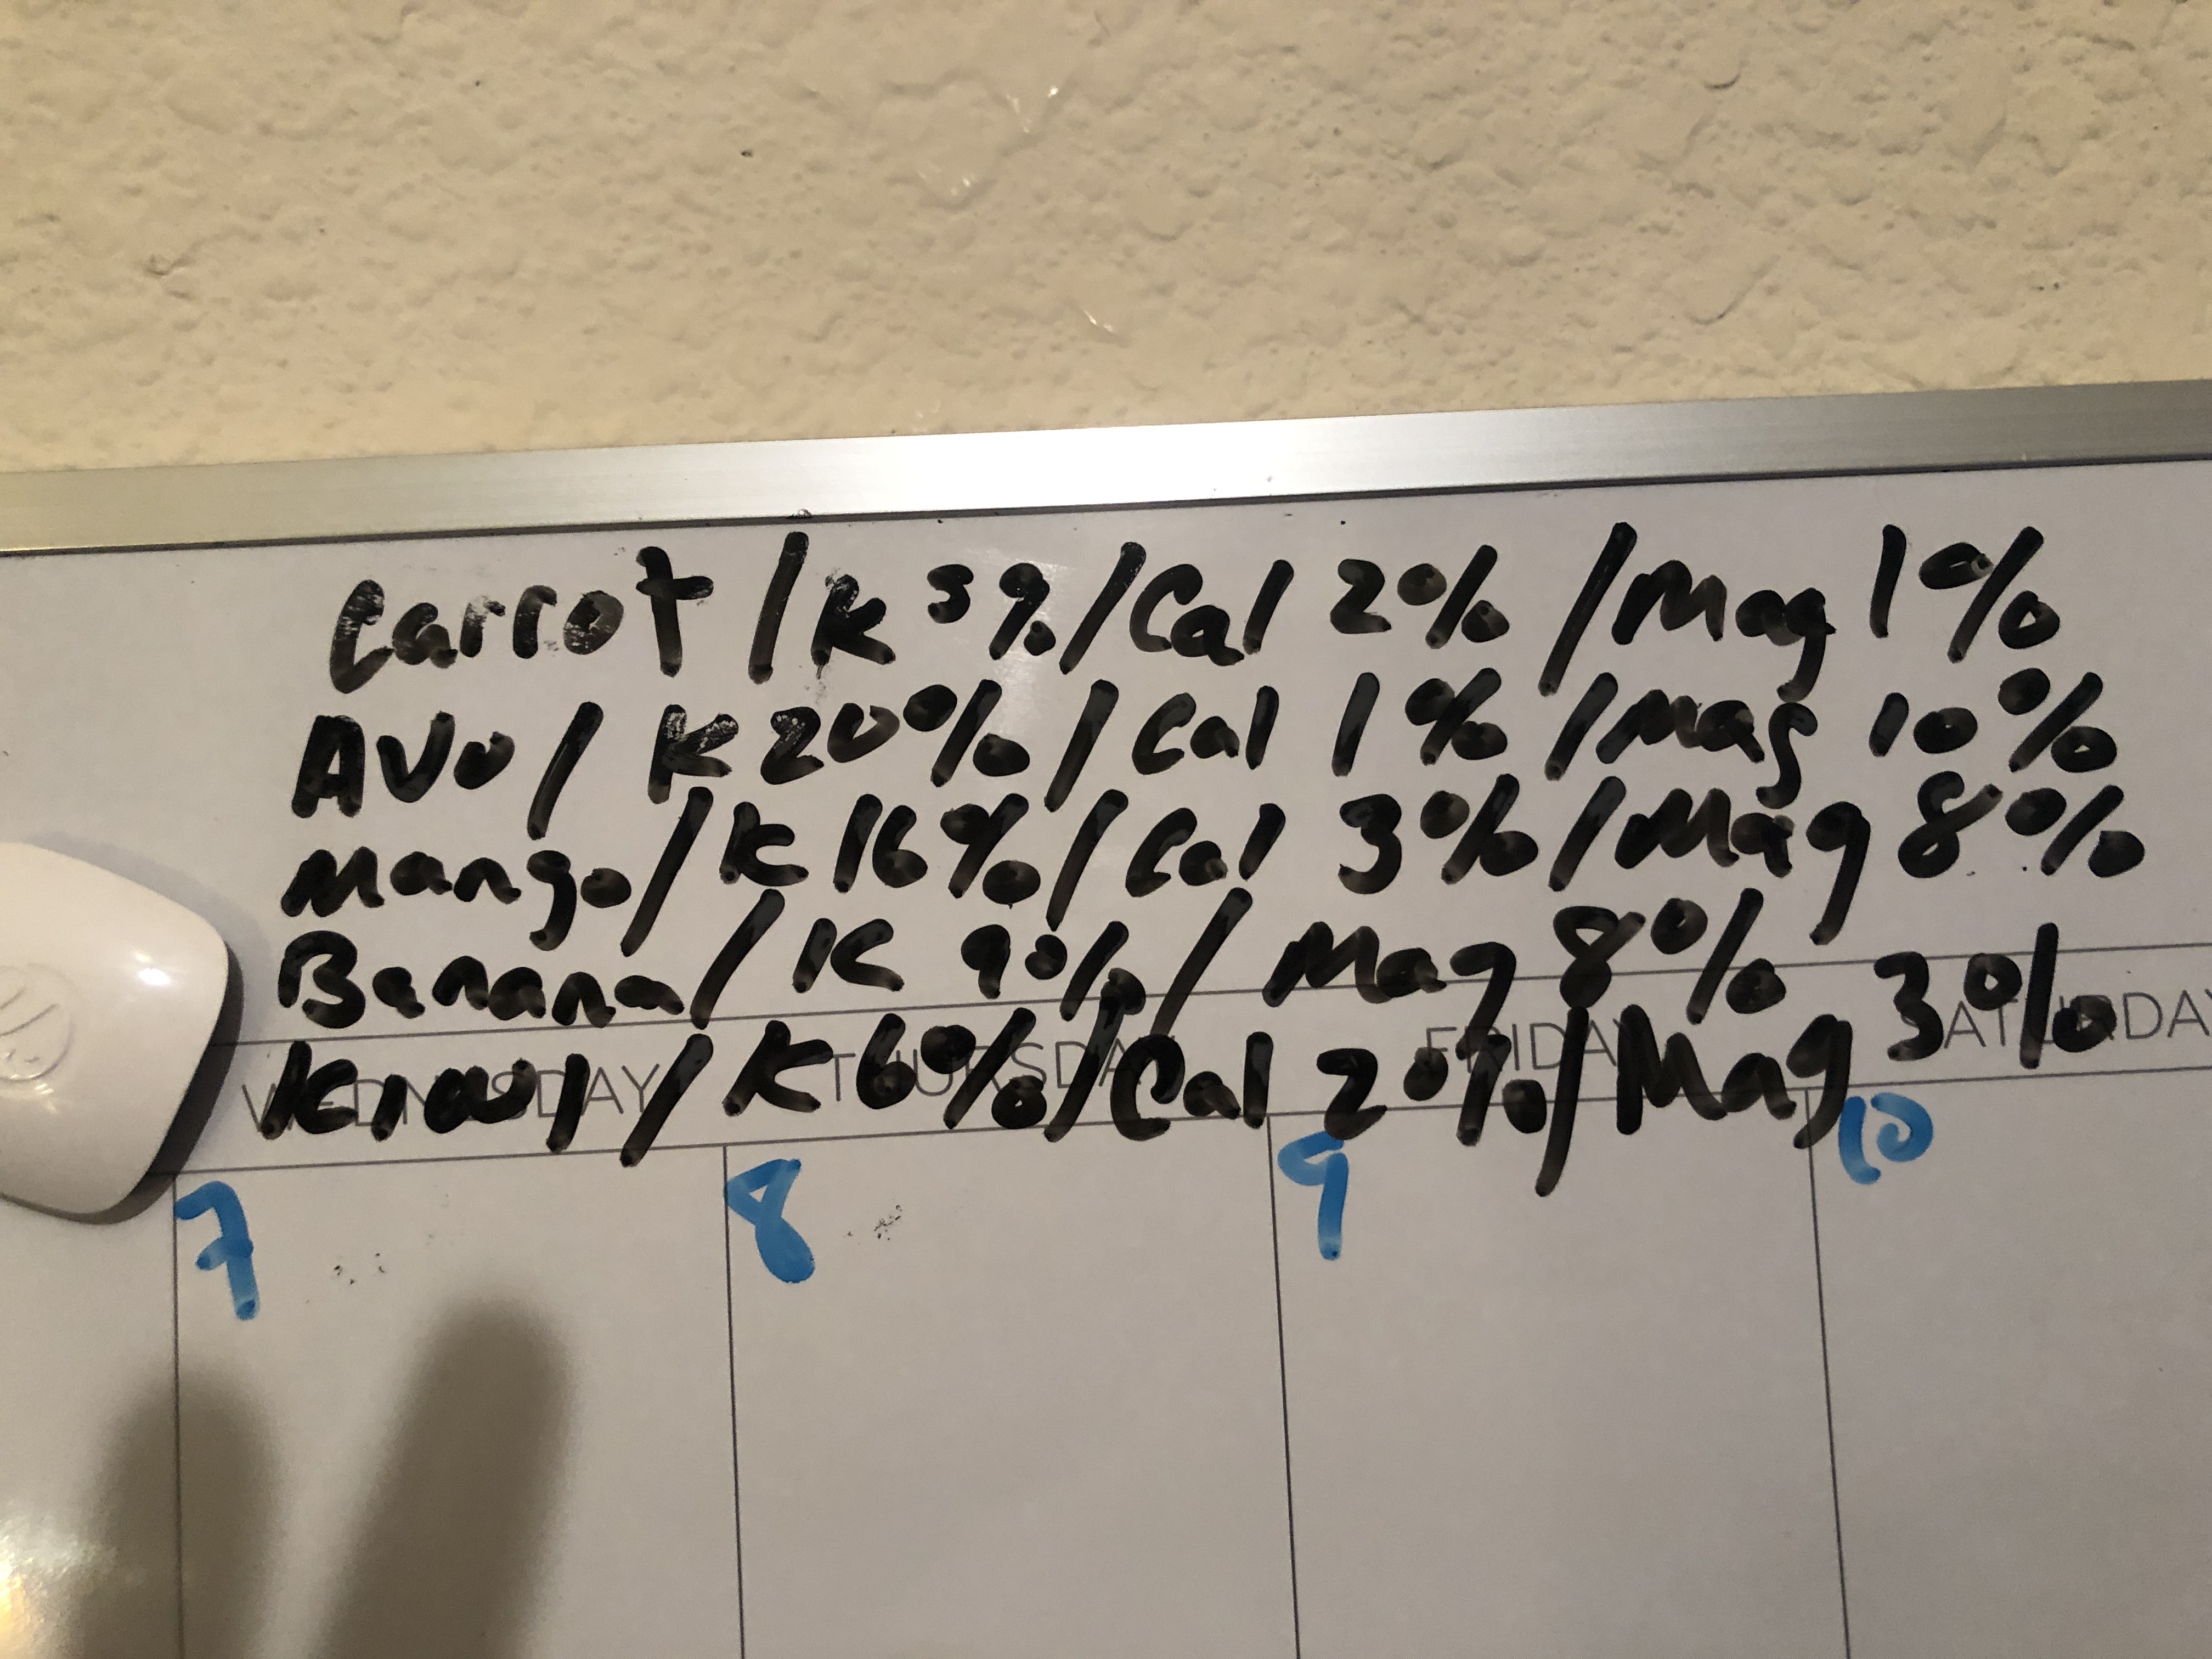 Carrot / K 5% / Cal 2% / Mag 1%
Avo / K 20% / Cal 1% / Mag 10%
Mango / K 16% / Cal 3% / Mag 8%
Banana / K 9% / Mag 8%
Kiawi / K 6% / Cal 2% / Mag 3%
WEDNESDAY THURSDAY FRIDAY SATURDAY
7 8 9 10